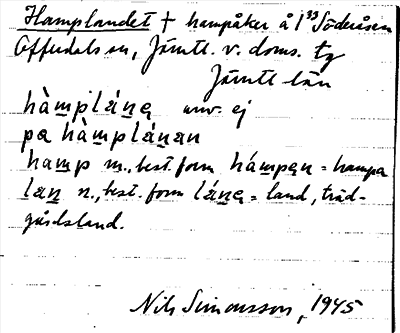 Hamplandet + hampåker å 1³³ Söderåsen
Offerdals sn, Jämtl. v. doms. tg
Jämtl län
hàmpláṉę unv. ej
pa hàmpláṉan
hamp m., best. form hámpęn = hampa
laṉ n., best. form láṉę = land, träd-
gårdsland.
Nils Simonsson, 1945